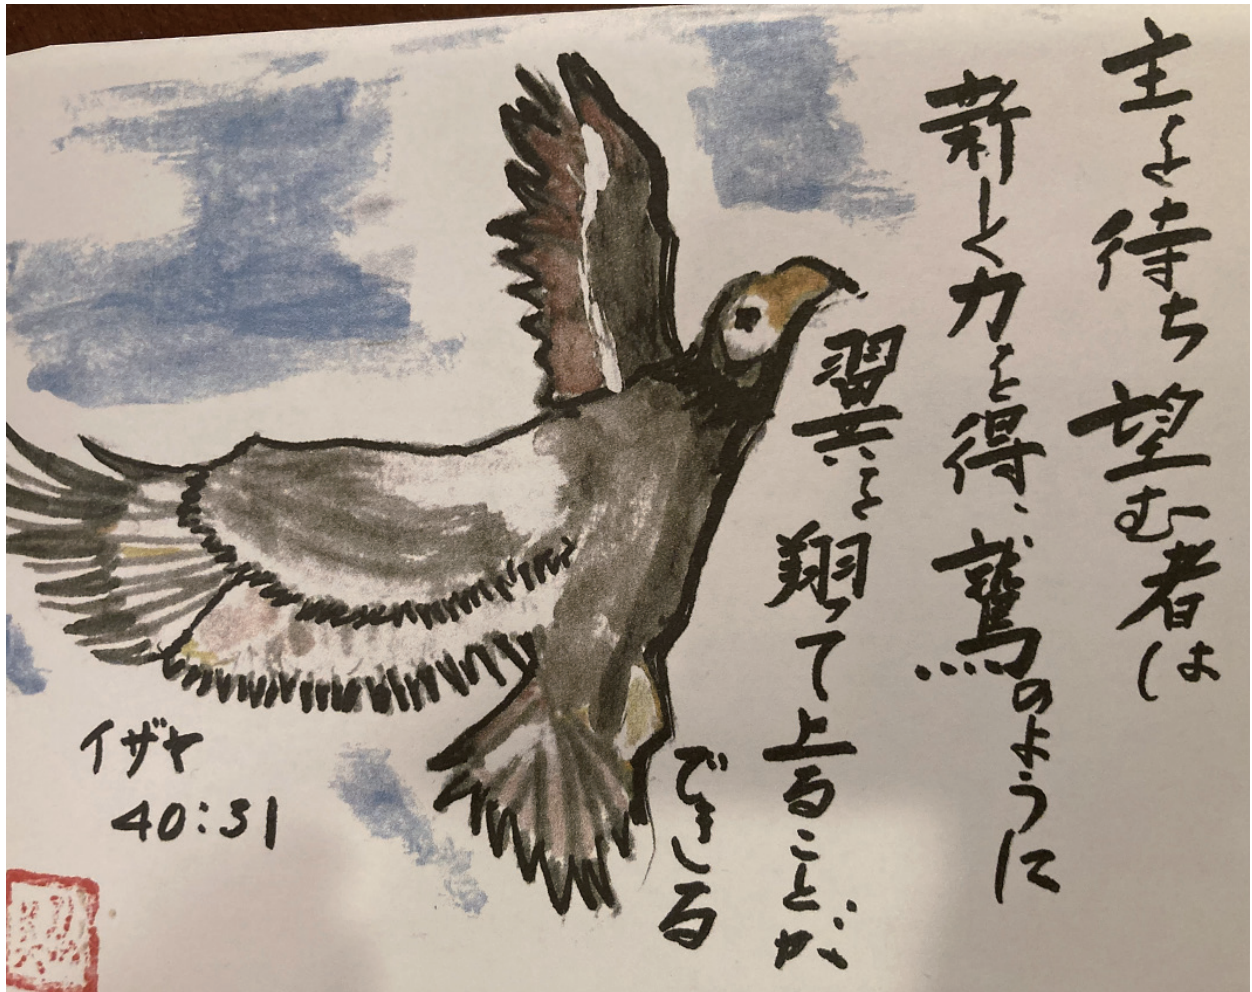 主を待ち望む者は
新しく力を得、鷲のように
翼を翔って上ることが
できる
イザヤ
40:31